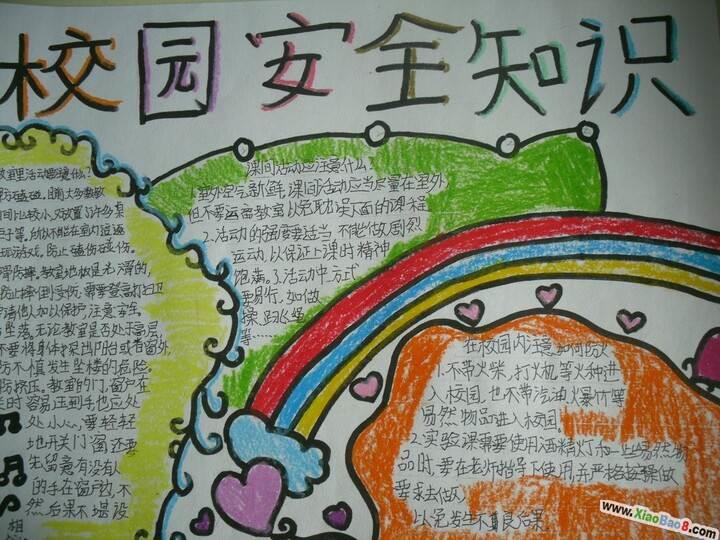 校园安全知识
教室里活动要注意什么？
防磕碰。目前大多数教
间比较小，又放置了许多桌
子等。所以不能在室内追逐
防滑、防摔。教室地板是光滑的，
防止摔倒受伤；需要登高打扫卫
请他人加以保护，注意安全。
坠落。无论教室是否处于高层
不要将身体探出阳台或者窗外，
防不慎发生坠楼的危险。
防挤压。教室的门、窗户在
时容易压到手也应处
处小心，要轻轻
地开关门窗，还要
先留意有没有人
的手在窗户边，不
然后果不堪设
相
课间活动应注意什么
1.室外空气新鲜，课间活动应当尽量在室外
但不要远离教室，以免耽误下面的课程
2.活动的强度要适当，不能做剧烈
运动，以保证上课时精神
饱满。3.活动中方式
要易行，如做
操、跳绳
等……
在校园内注意如何防火
1.不带火柴、打火机等火种进
入校园，也不带汽油、爆竹等
易燃物品进入校园。
2.实验课需要使用酒精灯和一些易燃物
品时，要在老师指导下使用，并严格按操做
要求去做，
以免发生不良后果。
www.XiaoBao8.com